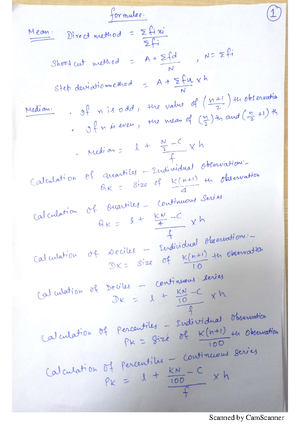 formulae
1
Mean: Direct method = Σfixi / Σfi
Shortcut method = A + Σfd / N , N = Σfi
Step deviation method = A + Σfu / N × h
Median: · If n is odd, the value of (n+1 / 2) th observation
· If n is even, the mean of (n/2) th and (n/2 + 1) th
· Median = l + (N/2 - C) / f × h
Calculation of quartiles - Individual Observation:-
QK = Size of K(n+1) / 4 th Observation
Calculation of Quartiles - Continuous Series
QK = l + (KN/4 - C) / f × h
Calculation of Deciles - Individual Observation:-
DK = Size of K(n+1) / 10 th observation
Calculation of Deciles - Continuous series
DK = l + (KN/10 - C) / f × h
Calculation of Percentiles - Individual Observation
PK = Size of K(n+1) / 100 th Observation
Calculation of Percentiles - Continuous series
PK = l + (KN/100 - C) / f × h
Scanned by CamScanner